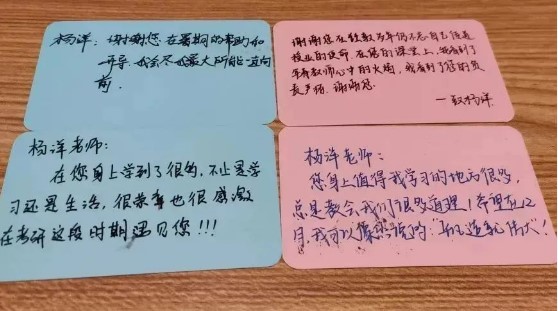 杨洋：谢谢您在暑期的帮助和
开导.我会尽我最大所能一直向
前.
谢谢您在
教业的使命.在您的课堂上,我看到了
年轻教师心中的火焰,我看到了您的负
责 谢谢您.
—致杨洋
杨洋老师:
在您身上学到了很多,不止是学
习还是生活,很荣幸也很感激
在考研这段时期遇见您!!!
杨洋老师:
您身上值得我学习的地方很多,
总是教会我们很多道理!希望在12
月,我可以像您说的"平凡造就伟大"!